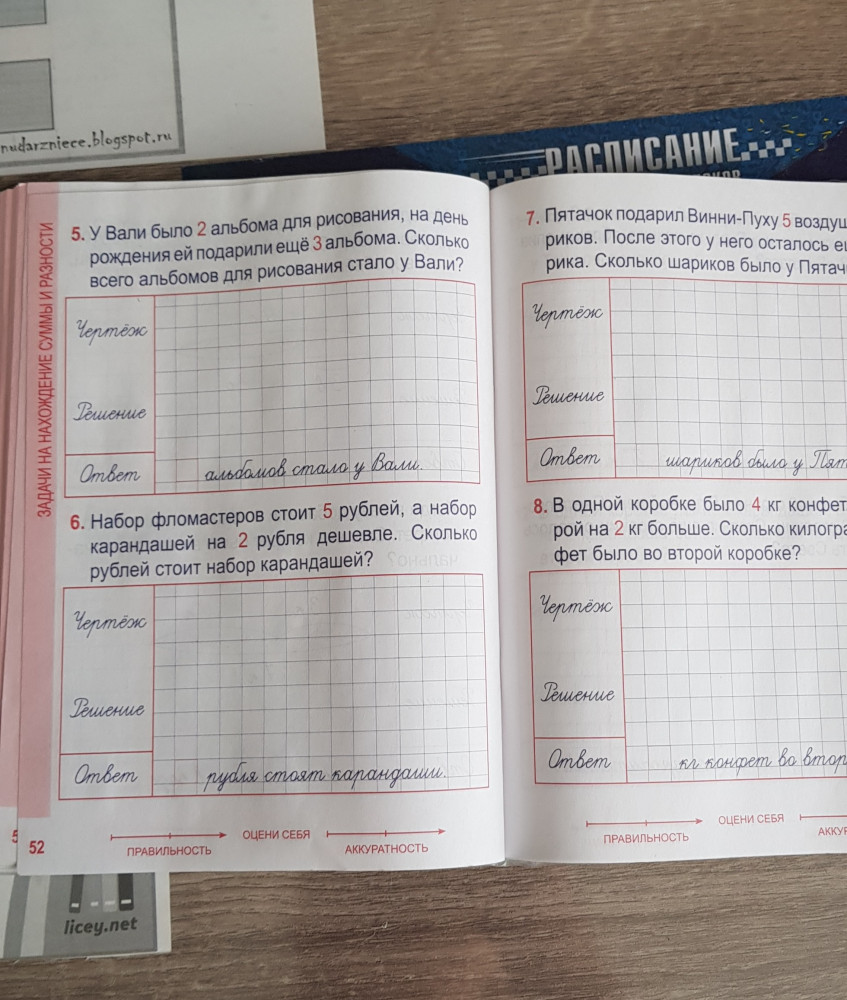 nudarzniece.blogspot.ru
РАСПИСАНИЕ
ЗАДАЧИ НА НАХОЖДЕНИЕ СУММЫ И РАЗНОСТИ
5. У Вали было 2 альбома для рисования, на день
рождения ей подарили ещё 3 альбома. Сколько
всего альбомов для рисования стало у Вали?
Чертёж
Решение
Ответ
альбомов стало у Вали.
6. Набор фломастеров стоит 5 рублей, а набор
карандашей на 2 рубля дешевле. Сколько
рублей стоит набор карандашей?
Чертёж
Решение
Ответ
рубля стоят карандаши.
52
ПРАВИЛЬНОСТЬ
ОЦЕНИ СЕБЯ
АККУРАТНОСТЬ
7. Пятачок подарил Винни-Пуху 5 воздуш
риков. После этого у него осталось
рика. Сколько шариков было у Пятач
Чертёж
Решение
Ответ
шариков было у Пят
8. В одной коробке было 4 кг конфет
рой на 2 кг больше. Сколько килогра
фет было во второй коробке?
Чертёж
Решение
Ответ
кг конфет во втор
ПРАВИЛЬНОСТЬ
ОЦЕНИ СЕБЯ
АККУР
licey.net